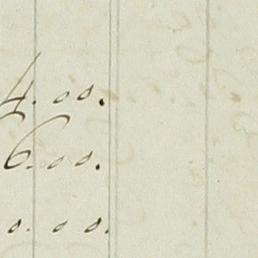 4.00.
6.00.
0.00.